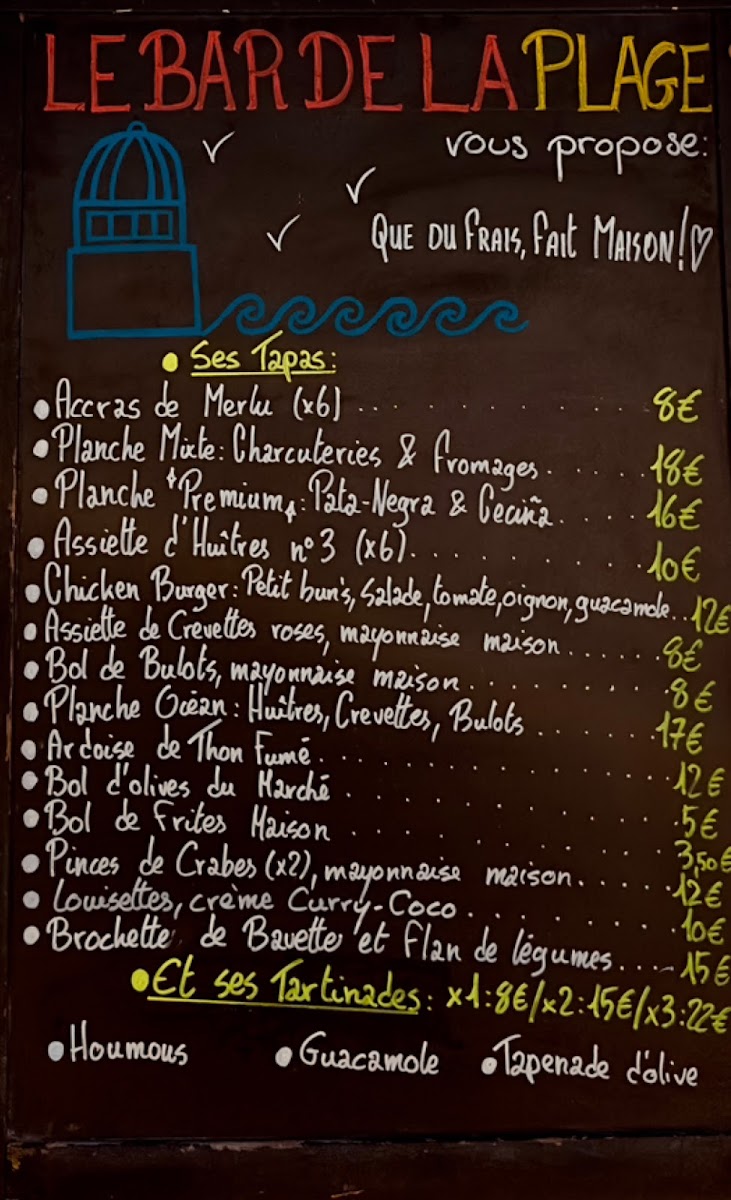 LE BAR DE LA PLAGE
vous propose:
QUE DU FRAIS, FAIT MAISON! ♡
• Ses Tapas:
• Accras de Merlu (x6) .......... 8€
• Planche Mixte: Charcuteries & Fromages ...... 18€
• Planche "Premium": Pata-Negra & Ceciña .... 16€
• Assiette d'Huîtres n°3 (x6) .......... 10€
• Chicken Burger: Petit bun's, salade, tomate, oignon, guacamole .. 12€
• Assiette de Crevettes roses, mayonnaise maison ...... 8€
• Bol de Bulots, mayonnaise maison .......... 8€
• Planche Océan: Huîtres, Crevettes, Bulots ...... 17€
• Ardoise de Thon Fumé .............. 12€
• Bol d'olives du Marché ............ 5€
• Bol de Frites Maison ............ 3,50€
• Pinces de Crabes (x2), mayonnaise maison ..... 12€
• Louisettes, crème Curry-Coco .......... 10€
• Brochette de Bavette et flan de légumes ..... 15€
• Et ses Tartinades: x1:8€/x2:15€/x3:22€
• Houmous • Guacamole • Tapenade d'olive